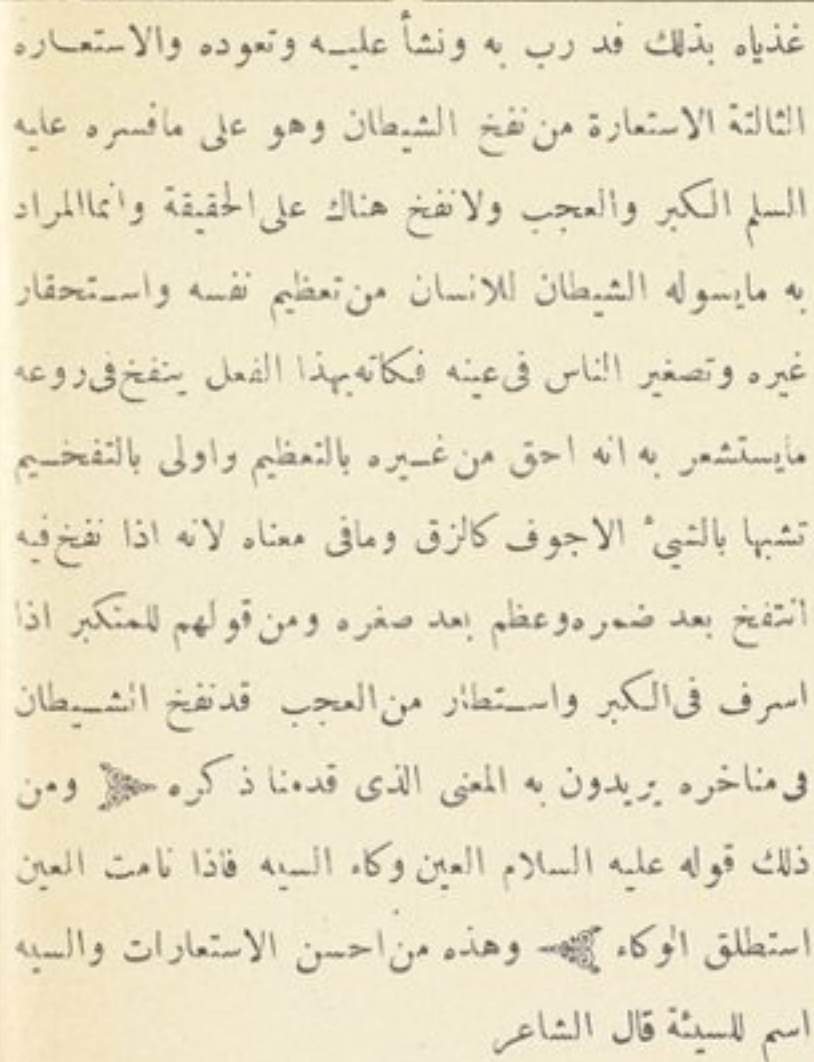 غذياه بذلك فد رب به ونشأ عليه وتعوده والاستعاره
الثالثة الاستعارة من نفخ الشيطان وهو على مافسره عليه
السلم الكبر والعجب ولانفخ هناك على الحقيقة وانماالمراد
به مايسوله الشيطان للانسان من تعظيم نفسه واستحقار
غيره وتصغير الناس فى عينه فكانه بهذا الفعل ينفخ فى روعه
مايستشعر به انه احق من غيره بالتعظيم واولى بالتفخيم
تشبها بالشيئ الاجوف كالزق ومافى معناه لانه اذا نفخ فيه
انتفخ بعد ضمره وعظم بعد صغره ومن قولهم للمتكبر اذا
اسرف فى الكبر واستطار من العجب قدنفخ الشيطان
فى مناخره يريدون به المعنى الذى قدمنا ذكره ومن
ذلك قوله عليه السلام العين وكاء السيه فاذا نامت العين
استطلق الوكاء وهذه من احسن الاستعارات والسيه
اسم للسيئة قال الشاعر